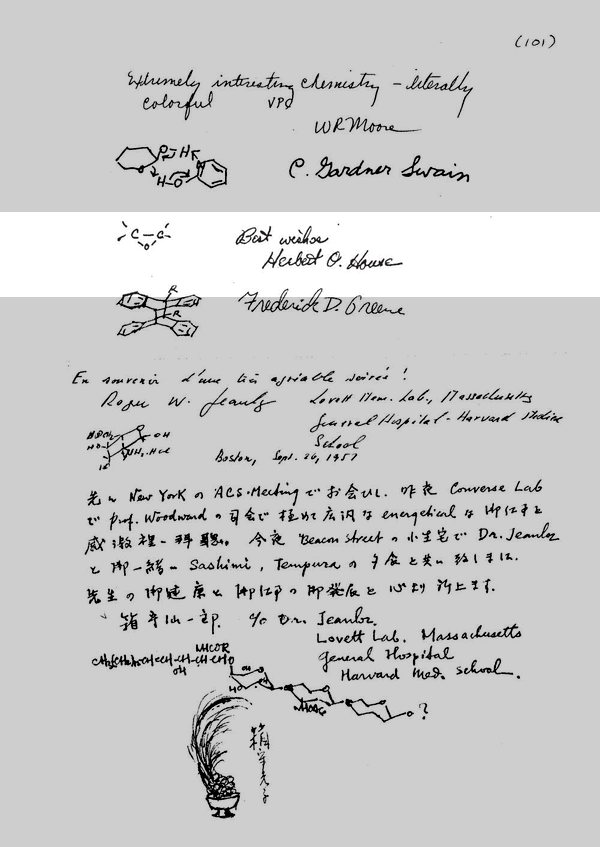 (101)
Extremely interesting chemistry - literally
colorful VPC
WR Moore
C. Gardner Swain
Best wishes
Herbert O. House
Frederick D. Greene
En souvenir d'une très agréable soirée!
Roger W. Jeanloz Lovett Mem. Lab., Massachusetts
General Hospital - Harvard Medical
School
Boston, Sept. 26, 1957
先に New York の ACS-Meeting でお会ひし、昨夜 Converse Lab
で Prof. Woodward の司会で極めて広汎な energetical な御仕事を
今夜 Beacon Street の小生宅で Dr. Jeanloz
と御一緒に Sashimi, Tempura の夕食を共に致しました。
先生の御健康と御仕事の御発展を心より祈上ます。
箱守仙一郎 c/o Dr. Jeanloz.
Lovett Lab. Massachusetts
General Hospital
Harvard Med. School.
NHCOR
OH
NHAC
O ?